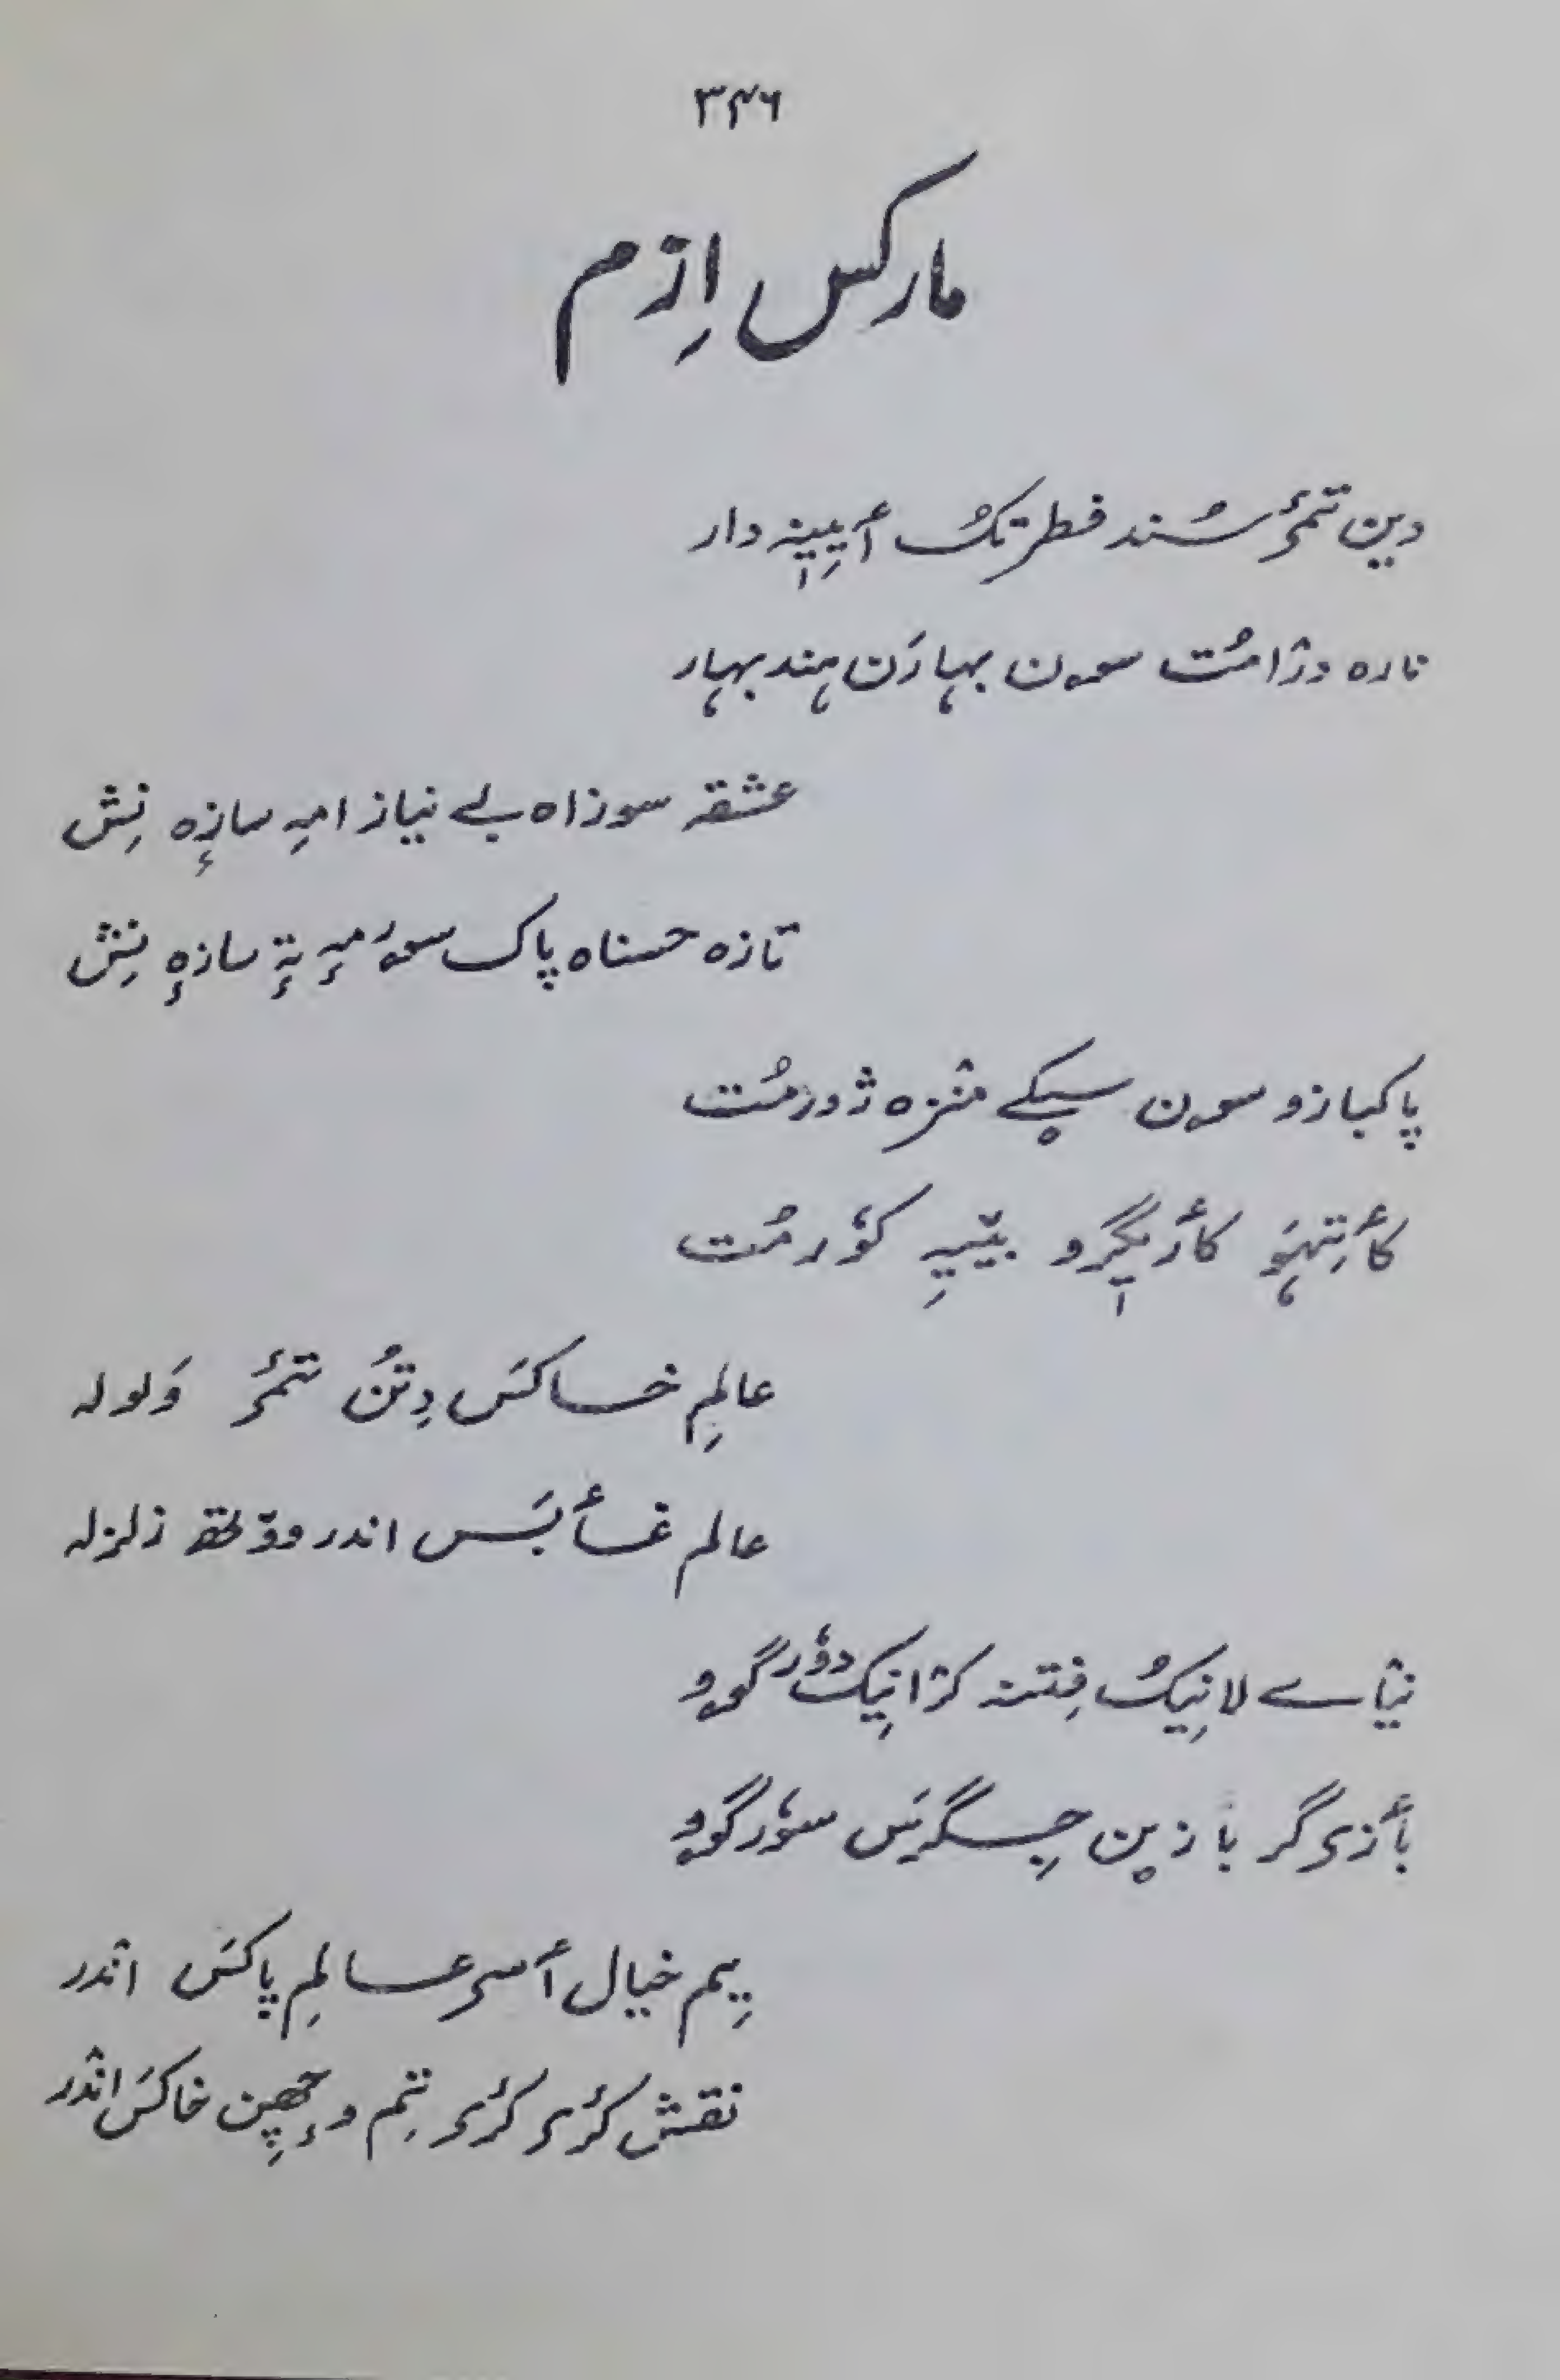 ۳۴۶
مارکس اِزم
دین تٔمۍ سُند فطرتُک أیِینہٕ دار
نارہ درٛامُت سون بہارَن ہند بہار
عشقہ سوزاہ بے نیاز امہِ سازٕہ نِش
تازہ حسناہ پاک سورمہٕ تہٕ سازٕہ نِش
پاکبازو سون سیکے منٛزہ ژورمُت
کأتِہَو کأریگرو بیٚیہِ کوٚرمُت
عالمِ خاکَس دِتُن تٔمۍ وَلولہ
عالم غأبَس اندر ووٚتھ زلزلہ
نیٛاے لانِیکُ فِتنہ کرٛانِیک دوٗر گوو
بأزی گر بازین جِگرَس سوٗر گوو
یِم خیال أسۍ عالمِ پاکَس انٛدر
نقش کٔرۍ کٔرۍ تِم وٕچھِن خاکَس انٛدر